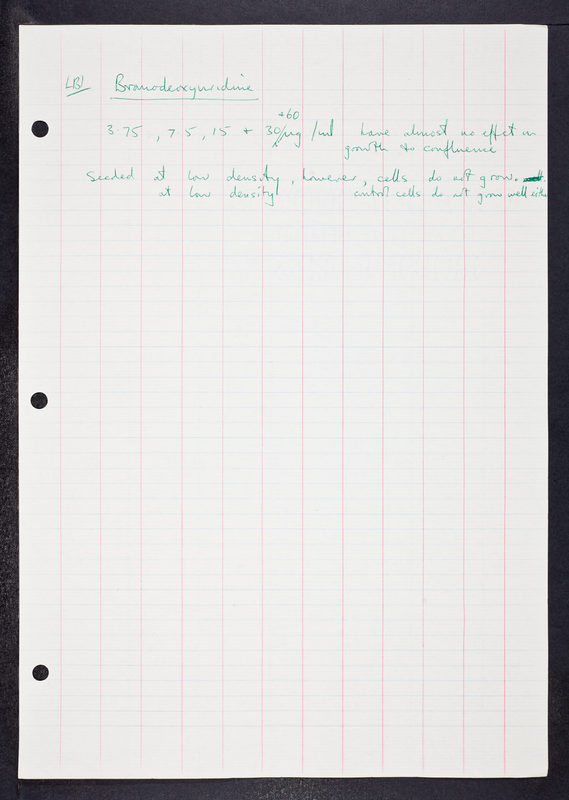 LBL Bromodeoxyuridine
+60
3.75, 7.5, 15 + 30 µg/ml have almost no effect on
growth to confluence
Seeded at low density, however, cells do not grow.
at low density control cells do not grow well either